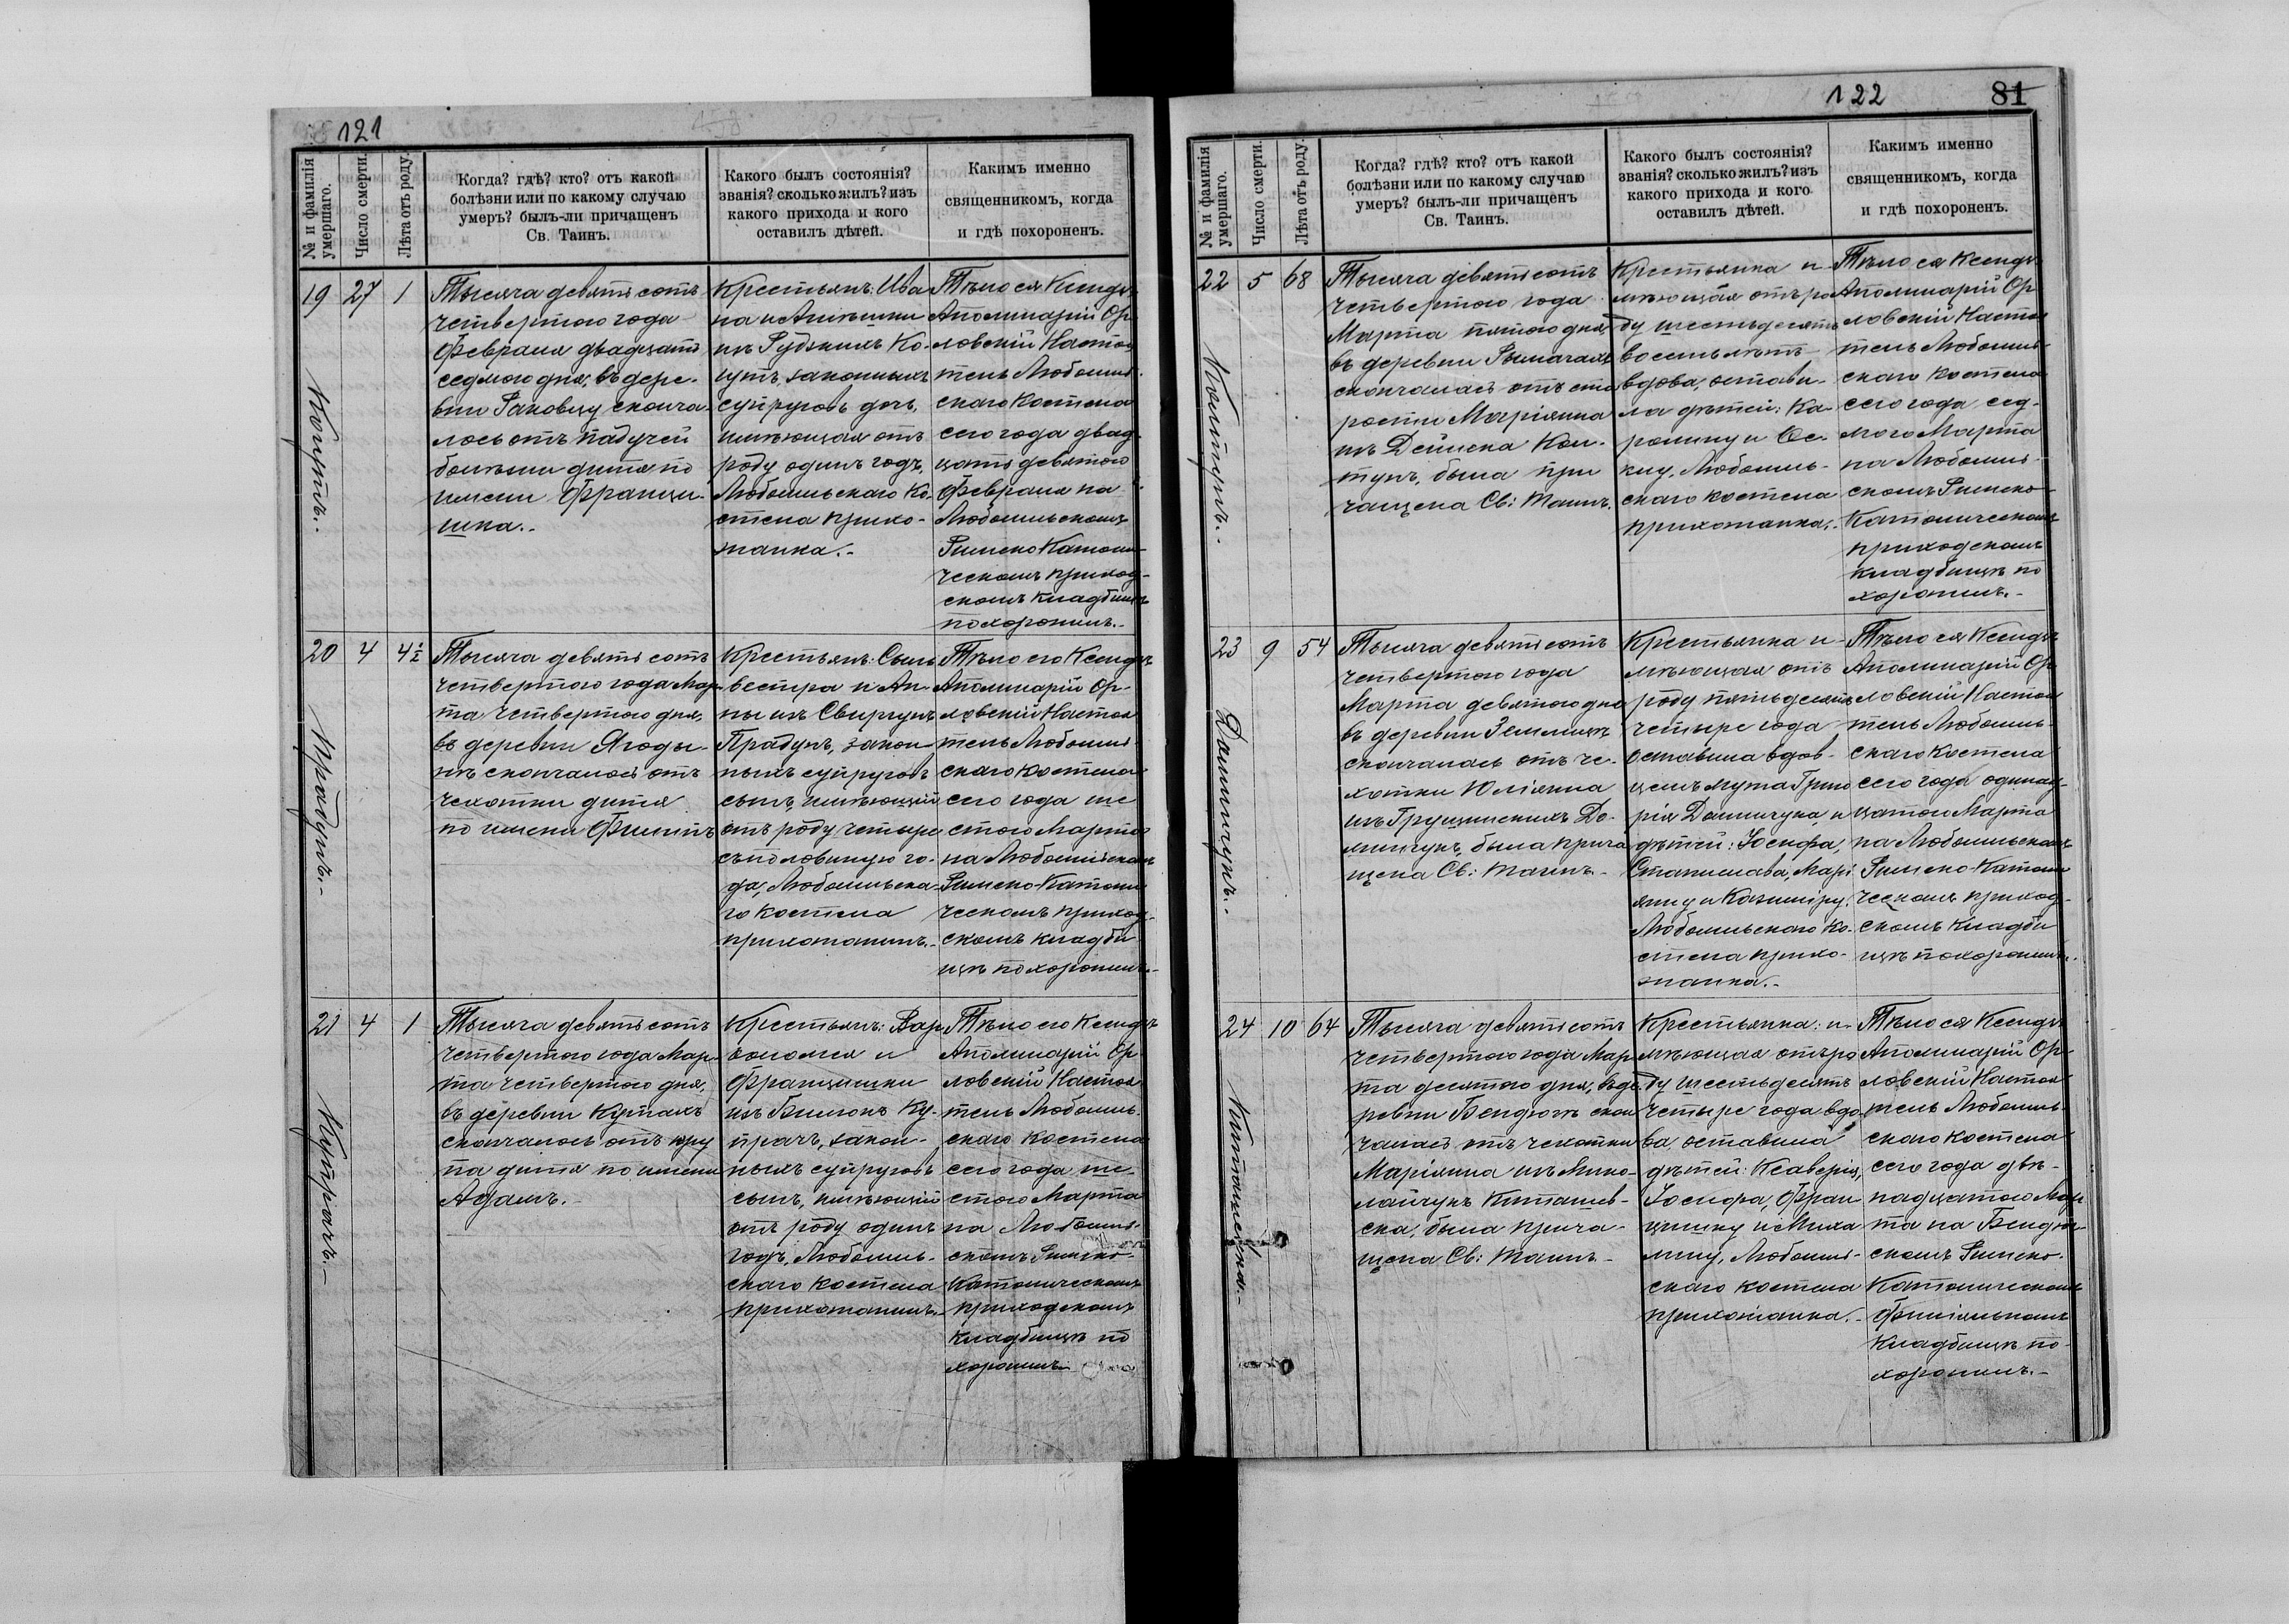 121
№ и фамилія умершаго.
Число смерти.
Лѣта отъ роду.
Когда? гдѣ? кто? отъ какой
болѣзни или по какому случаю
умеръ? былъ-ли причащенъ
Св. Таинъ.
Какого былъ состоянія?
званія? сколько жилъ? изъ
какого прихода и кого
оставилъ дѣтей.
Какимъ именно
священникомъ, когда
и гдѣ похороненъ.
19
27
1
Тысяча девятьсотъ
четвертого года
Февраля двадцать
седмого дня, въ дере-
вни сконча-
лось отъ падучей
болѣзни дитя по
имени Франци-
шка.-
Крестьянъ: Ива
на и
изъ Ко-
законныхъ
супруговъ дочь,
имѣющая отъ
роду одинъ годъ,
Любомльскаго Ко-
стела прихо-
жанка.-
Тѣло ея Ксендзъ
Аполинарій Ор-
ловскій Настоя
тель Любомль-
скаго Костела
сего года двад-
цать девятого
Февраля на
Любомльскомъ
Римско Католи-
ческомъ приход-
скомъ кладбищѣ
похоронилъ.-
20
4
4½
Прадунъ.-
Тысяча девятьсотъ
четвертого года Мар-
та четвертого дня,
въ деревни Ягоды-
нѣ скончалось отъ
чехотки дитя
по имени Филипъ
Крестьянъ: Силь
вестра и Ан-
ны изъ Свиргунъ
Прадунъ, закон-
ныхъ супруговъ
сынъ, имѣющій
отъ роду четыре
съ половиною го-
да, Любомльска-
го Костела
прихожанинъ.-
Тѣло его Ксендзъ
Аполинарій Ор-
ловскій Настоя
тель Любомль-
скаго Костела
сего года ше
стого Марта
на Любомльскомъ
Римско-Католи
ческомъ приход-
скомъ кладби
щѣ похоронилъ.-
21
4
1
Купрачъ.-
Тысяча девятьсотъ
четвертого года Мар-
та четвертого дня,
въ деревни
скончалось отъ кру
па дитя по имени
Адамъ.-
Крестьянъ: Вар
ѳоломея и
Францишки
изъ Ку-
прачъ, закон-
ныхъ супруговъ
сынъ, имѣющій
отъ роду одинъ
годъ, Любомль-
скаго костела
прихожанинъ.-
Тѣло его Ксендзъ
Аполинарій Ор
ловскій Настоя
тель Любомль-
скаго Костела
сего года ше
стого Марта
на Любомль-
скомъ Римско-
Католическомъ
приходскомъ
кладбищѣ по
хоронилъ.-
122
81
№ и фамилія умершаго.
Число смерти.
Лѣта отъ роду.
Когда? гдѣ? кто? отъ какой
болѣзни или по какому случаю
умеръ? былъ-ли причащенъ
Св. Таинъ.
Какого былъ состоянія?
званія? сколько жилъ? изъ
какого прихода и кого
оставилъ дѣтей.
Какимъ именно
священникомъ, когда
и гдѣ похороненъ.
22
5
68
Колтунъ.-
Тысяча девятьсотъ
четвертого года
Марта пятого дня
въ деревни Рымачахъ
скончалась отъ ста
рости Маріянна
изъ Кол-
тунъ, была при
чащена Св: Таинъ.
Крестьянка и-
мѣющая отъ ро
ду шестьдесятъ
восемь лѣтъ,
вдова, остави-
ла дѣтей: Ка-
ролину и
Любомль-
скаго костела
прихожанка.-
Тѣло ея Ксендзъ
Аполинарій Ор
ловскій Настоя
тель Любомль-
скаго Костела
сего года сед-
мого Марта
на Любомль-
скомъ Римско-
Католическомъ
приходскомъ
кладбищѣ по
хоронилъ.-
23
9
54
Тысяча девятьсотъ
четвертого года
Марта девятого дня
въ деревни
скончалась отъ че-
хотки Юліянна
изъ Грущинскихъ
была прича
щена Св: Таинъ.-
Крестьянка и-
мѣющая отъ
роду пятьдесятъ
четыре года
оставила вдов-
цемъ мужа Григо
рія и
дѣтей: Іосифа,
Станислава, Марі
янну и Казиміру,
Любомльскаго Ко-
стела прихо-
жанка.-
Тѣло ея Ксендзъ
Аполинарій Ор
ловскій Настоя
тель Любомль-
скаго Костела
сего года одинад-
цатого Марта
на Любомльскомъ
Римско-Католи
ческомъ приход-
скомъ кладби
щѣ похоронилъ.-
24
10
64
Тысяча девятьсотъ
четвертого года Мар
та десятого дня, въ де-
ревни Бендюгѣ скон
чалась отъ чехотки
Маріянна изъ Мико-
лайчукъ
была прича-
щена Св: Таинъ.-
Крестьянка: и-
мѣющая отъ ро
ду шестьдесятъ
четыре года вдо-
ва, оставила
дѣтей: Ксаверія,
Іосифа, Фран
цишку и Миха
лину, Любомль-
скаго костела
прихожанка.-
Тѣло ея Ксендзъ
Аполинарій Ор-
ловскій Настоя
тель Любомль-
скаго костела
сего года двѣ-
надцатого Мар
та на Бендю-
скомъ Римско-
Католическомъ
Филіяльномъ
кладбищѣ по-
хоронилъ.-